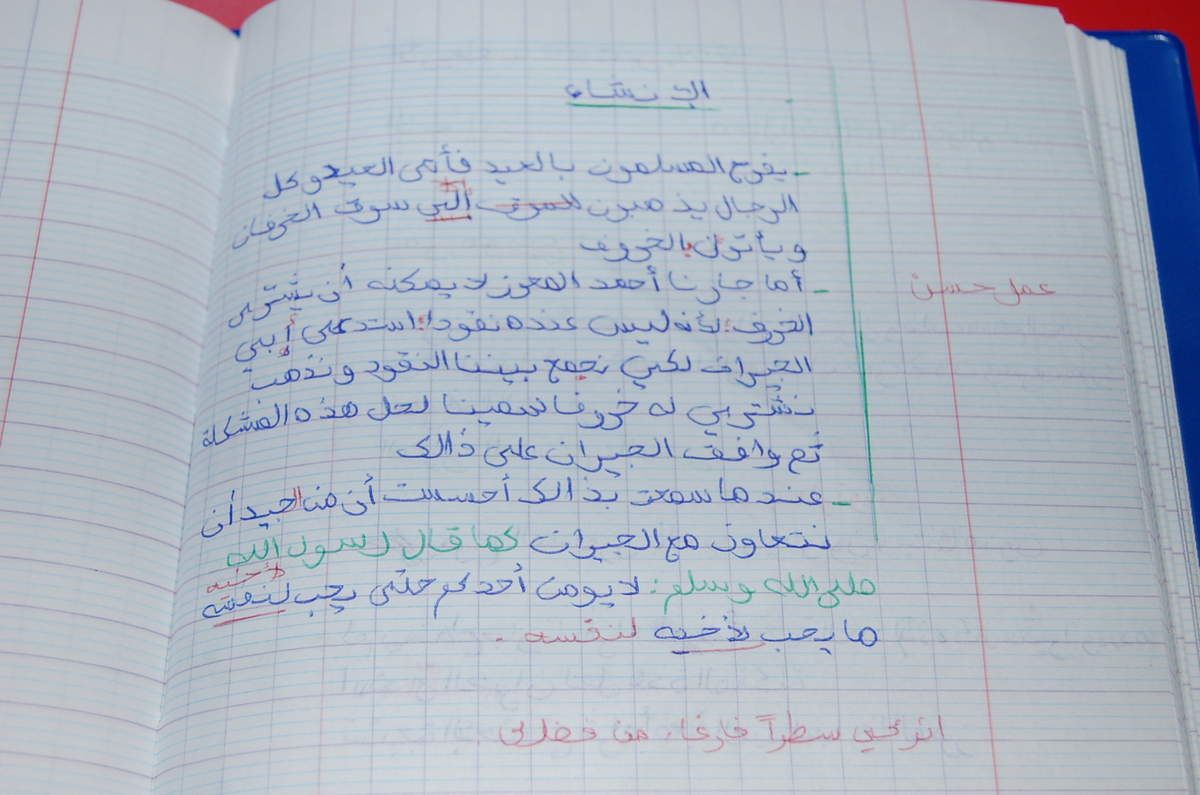 الإنشاء
- يفرح المسلمون بالعيد فأمي العيد وكل
الرجال يذهبون للسوق إلى سوق الخرفان
ويأتون بالخروف
- أما جارنا أحمد المعوز لا يمكنه أن يشتري
عمل حسن
الخروف لأنه ليس عنده نقودا استدعى أبي
الجيران لكي نجمع بيننا النقود ونذهب
نشتري له خروفا سمينا لحل هذه المشكلة
ثم وافق الجيران على ذالك
- عندما سمعت بذالك أحسست أن من الجيد أن
نتعاون مع الجيران كما قال رسول الله
لأخيه
صلى الله وسلم: لا يومن أحدكم حتى يحب لنفسه
ما يحب لأخيه لنفسه .
اتركي سطرآ فارغا، من فضلك